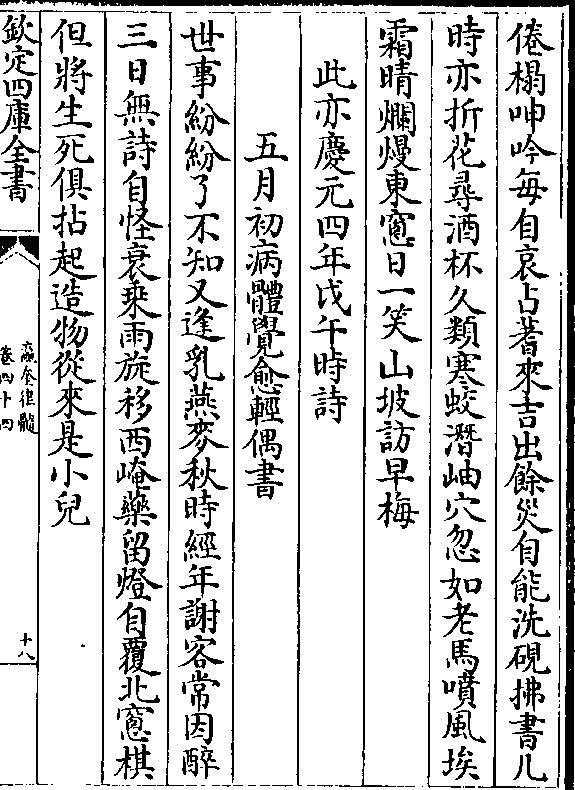 倦榻呻吟毎自哀占蓍來吉出餘災自能洗硯拂書几
時亦折花尋酒杯久類寒蛟潛岫穴忽如老馬噴風埃
霜晴爛熳東窻日一笑山坡訪早梅
此亦慶元四年戊午時詩
五月初病體覺愈輕偶書
世事紛紛了不知又逢乳燕麥秋時經年謝客常因醉
三日無詩自怪衰乗雨旋移西崦藥留燈自覆北窻棋
但將生死俱拈起造物從來是小兒
欽定四庫全書
瀛奎律髓
卷四十四
十八